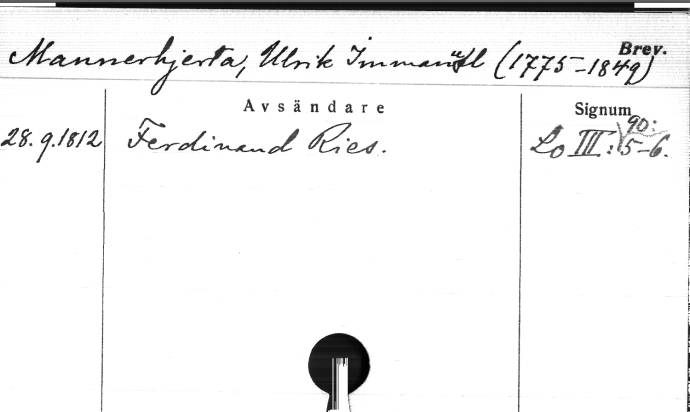 Brev.
Mannerhjerta, Ulrik Immanuel (1775-1849)
Avsändare
Signum
28.9.1812 Ferdinand Ries. Lo III: 90: 5-6.